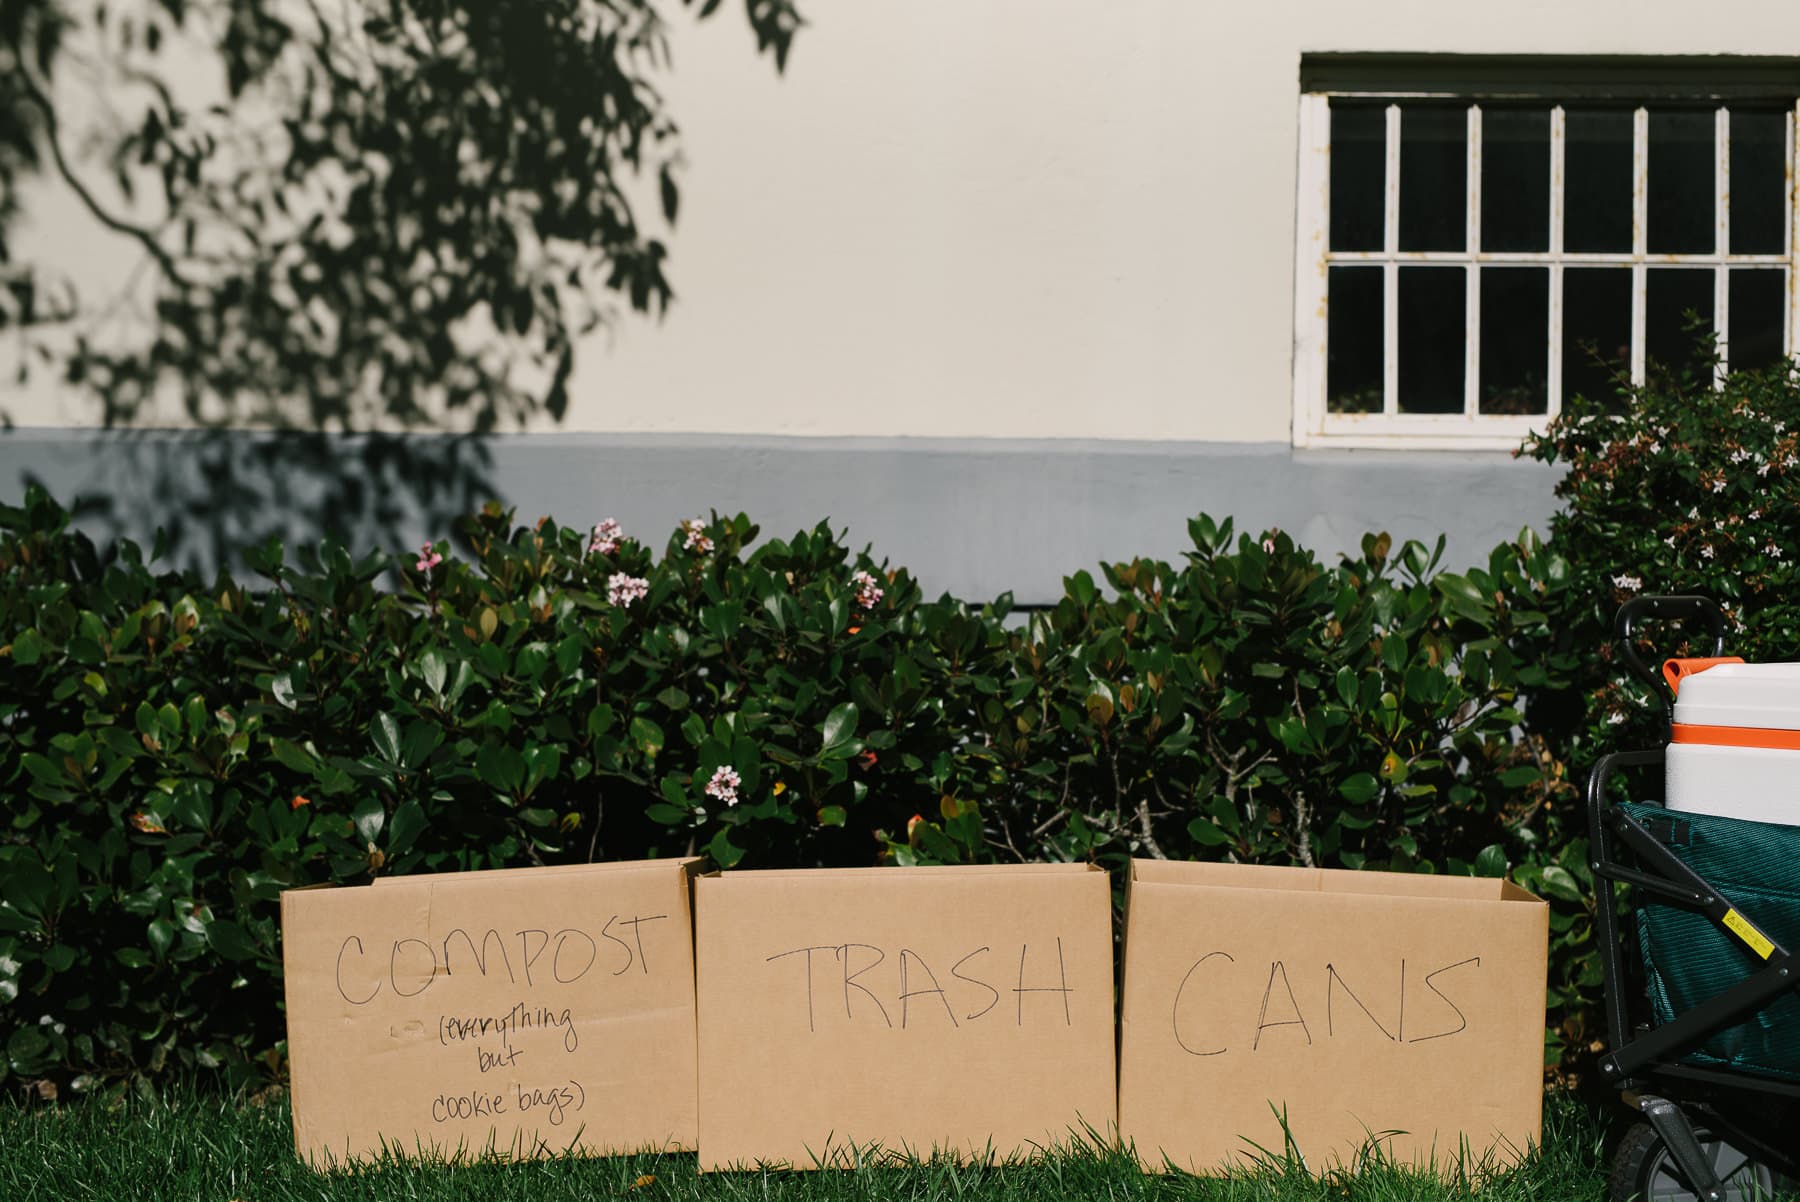 COMPOST
(everything
but
cookie bags)
TRASH
CANS